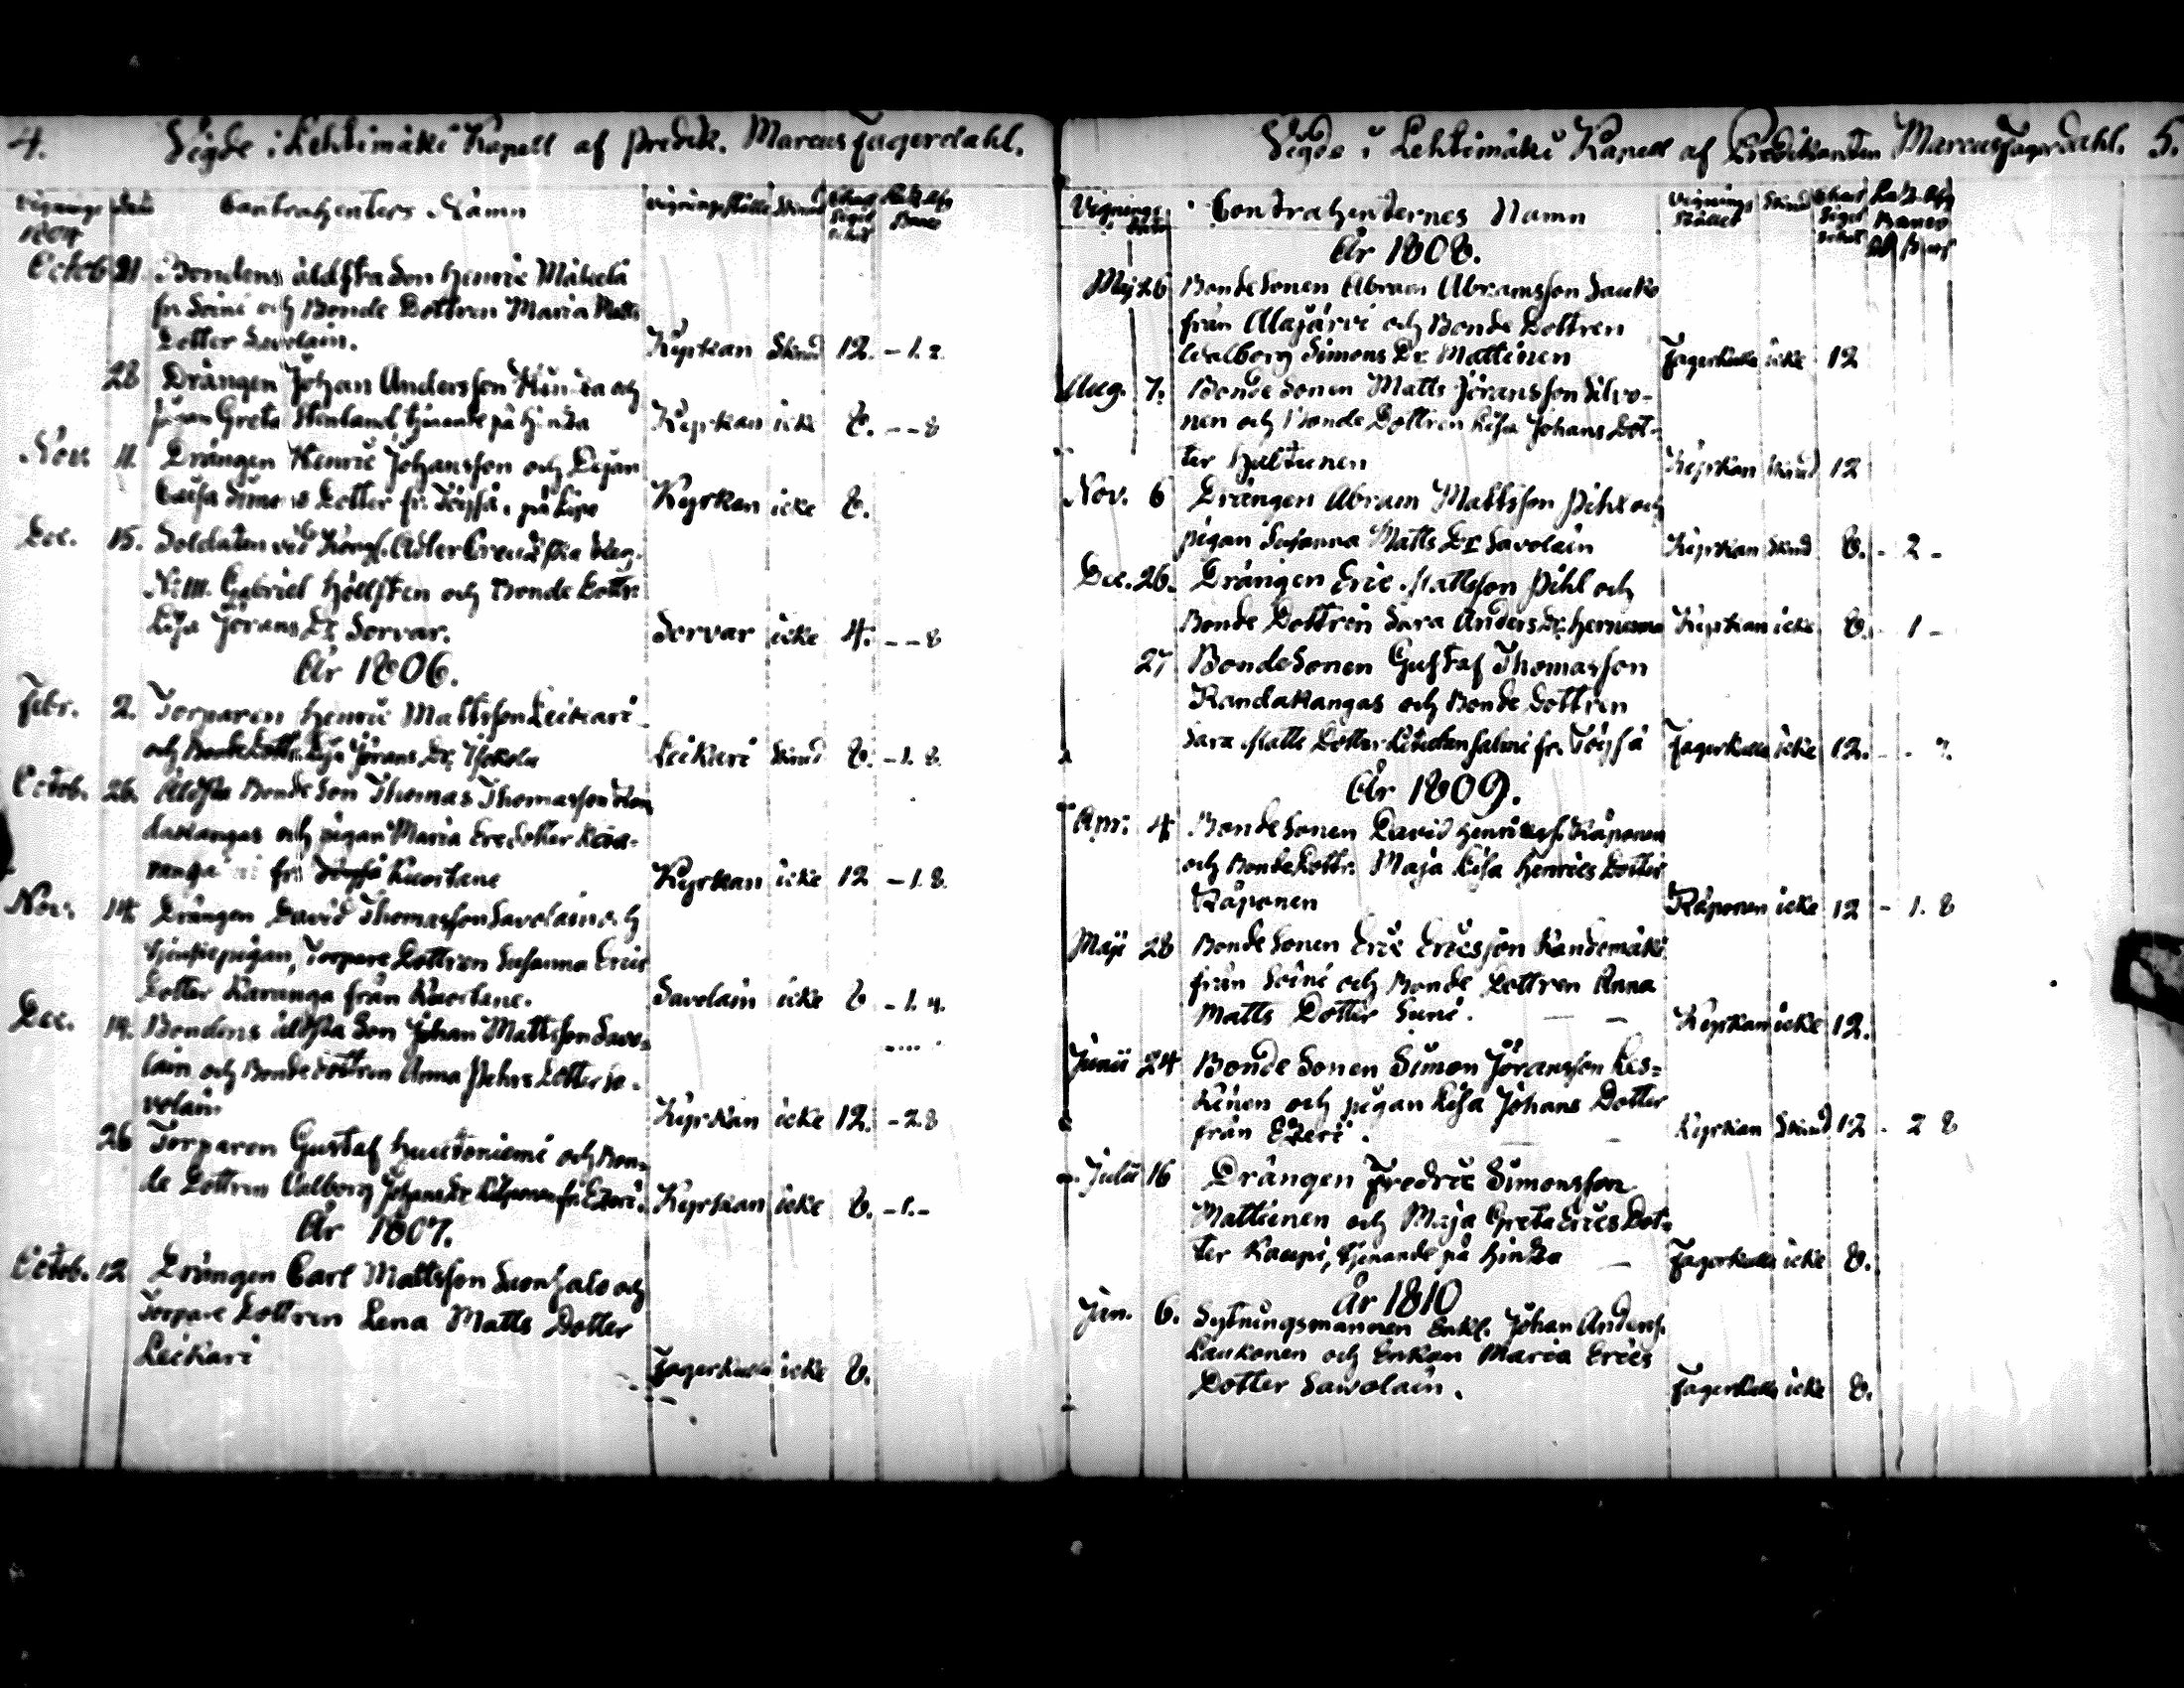 4. Vigde i Lehtimäki Kapell af Predik. Marcus Fagerdahl.
Vignings Contrahenters Namn Vigningsställe
1804
Octob 21. Bondens äldsta Son Henric Mäkelä
fr. Soini och Bonde Dottren Maria Matts
Dotter Savolain. Kyrkan Skrud 12. - 1. 2
28 Drängen Johan Andersson och
Greta Stenlund, tjenande på Hinka Kyrkan icke 8. - - 8
Nov. 11. Drängen Henric Johansson och Pigan
Caisa Simons Dotter fr. Töysä, på Kyrkan icke 8.
Dec. 15. Soldaten vid Kongl. AdlerCreutzska Reg.
Gabriel Höllsten och Bonde Dottr.
Lisa Jörans Dr Sorvar. Sorvar icke 4. - - 8
År 1806.
Febr. 2. Torparen Henric Mattsson Leikari
och Bonde Dottr. Lisa Jörans Dr Leikari Skrud 8. - 1. 8.
Octob. 26. Äldsta Bonde Son Thomas Thomasson Ran
dakangas och pigan Maria Erics Dotter
fr. Töysä Kuortane Kyrkan icke 12 - 1. 8.
Nov. 14. Drängen David Thomasson Savolain och
Tjenstepigan, Torpare Dottren Susanna Erics
Dotter Karanga från Kuortane. Savolain icke 8 - 1. 4.
Dec. 19. Bondens äldsta Son Johan Mattsson Savo=
lain och Bonde Dottren Anna Pehrs Dotter Sa-
volain Kyrkan icke 12. - 2. 8
26 Torparen Gustaf Huuskoniemi och Bon=
de Dottren Valborg Johans Dr fr. Etseri. Kyrkan icke 8. - 1. -
År 1807.
Octob. 12 Drängen Carl Mattsson Suonsalo och
Torpare Dottren Lena Matts Dotter
Leikari Fagerkulla icke 8.
Vigde i Lehtimäki Kapell af Predikanten Marcus Fagerdahl. 5.
Vignings Contrahenternes Namn Vignings Stället Skrud
År 1808.
Maj 26 Bonde Sonen Abram Abramsson Sauko
från Alajärvi och Bonde Dottren
Walborg Simons Dr. Mattinen Fagerkulla icke 12
Aug. 7. Bonde Sonen Matts Jöransson Silvo-
nen och Bonde Dottren Lisa Johans Dot-
ter Hultunen Kyrkan Skrud 12
Nov. 6 Drängen Abram Mattsson Pihl och
pigan Susanna Matts Dr Savolain Kyrkan Skrud 8. - 2 -
Dec. 26. Drängen Eric Mattsson Pihl och
Bonde Dottren Sara Anders Dr. Hernesma Kyrkan icke 8. - 1 -
27 Bonde Sonen Gustaf Thomasson
Randakangas och Bonde Dottren
Sara Matts Dotter fr. Töysä Fagerkulla icke 12.
År 1809.
Apr. 4 Bonde Sonen David Henricss. Räponen
och Bonde Dottr. Maja Lisa Henrics Dotter
Räponen Räponen icke 12 - 1. 8
Maji 28 Bonde Sonen Eric Ericsson Kandemäki
från Soini och Bonde Dottren Anna
Matts Dotter Suni. Kyrkan icke 12.
Junii 24 Bonde Sonen Simon Jöransson Les=
kinen och pigan Lisa Johans Dotter
från Etzeri. Kyrkan Skrud 12 - 2 8
Julii 16 Drängen Fredric Simonsson
Mattinen och Maja Greta Erics Dot=
ter Kaupi, tjenande på Hinka Fagerkulla icke 8.
År 1810
Jan. 6. Sytningsmannen Enkl. Johan Anderss.
Laukonen och Enkan Maria Erics
Dotter Sawolain. Fagerkulla icke 8.